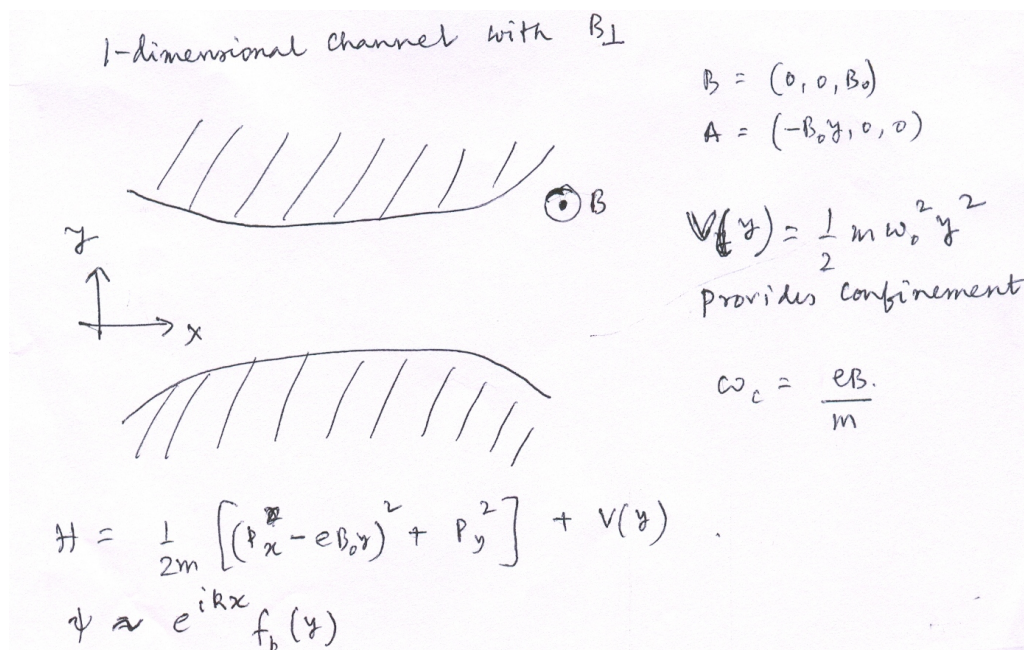 1-dimensional channel with B⊥
B = (0, 0, B₀)
A = (-B₀y, 0, 0)
B
y
x
V(y) = 1/2 m ω₀² y²
provides confinement
ω_c = eB. / m
H = 1/2m [(P_x - eB₀y)² + P_y²] + V(y) .
ψ ~ e^{ikx} f_b(y)